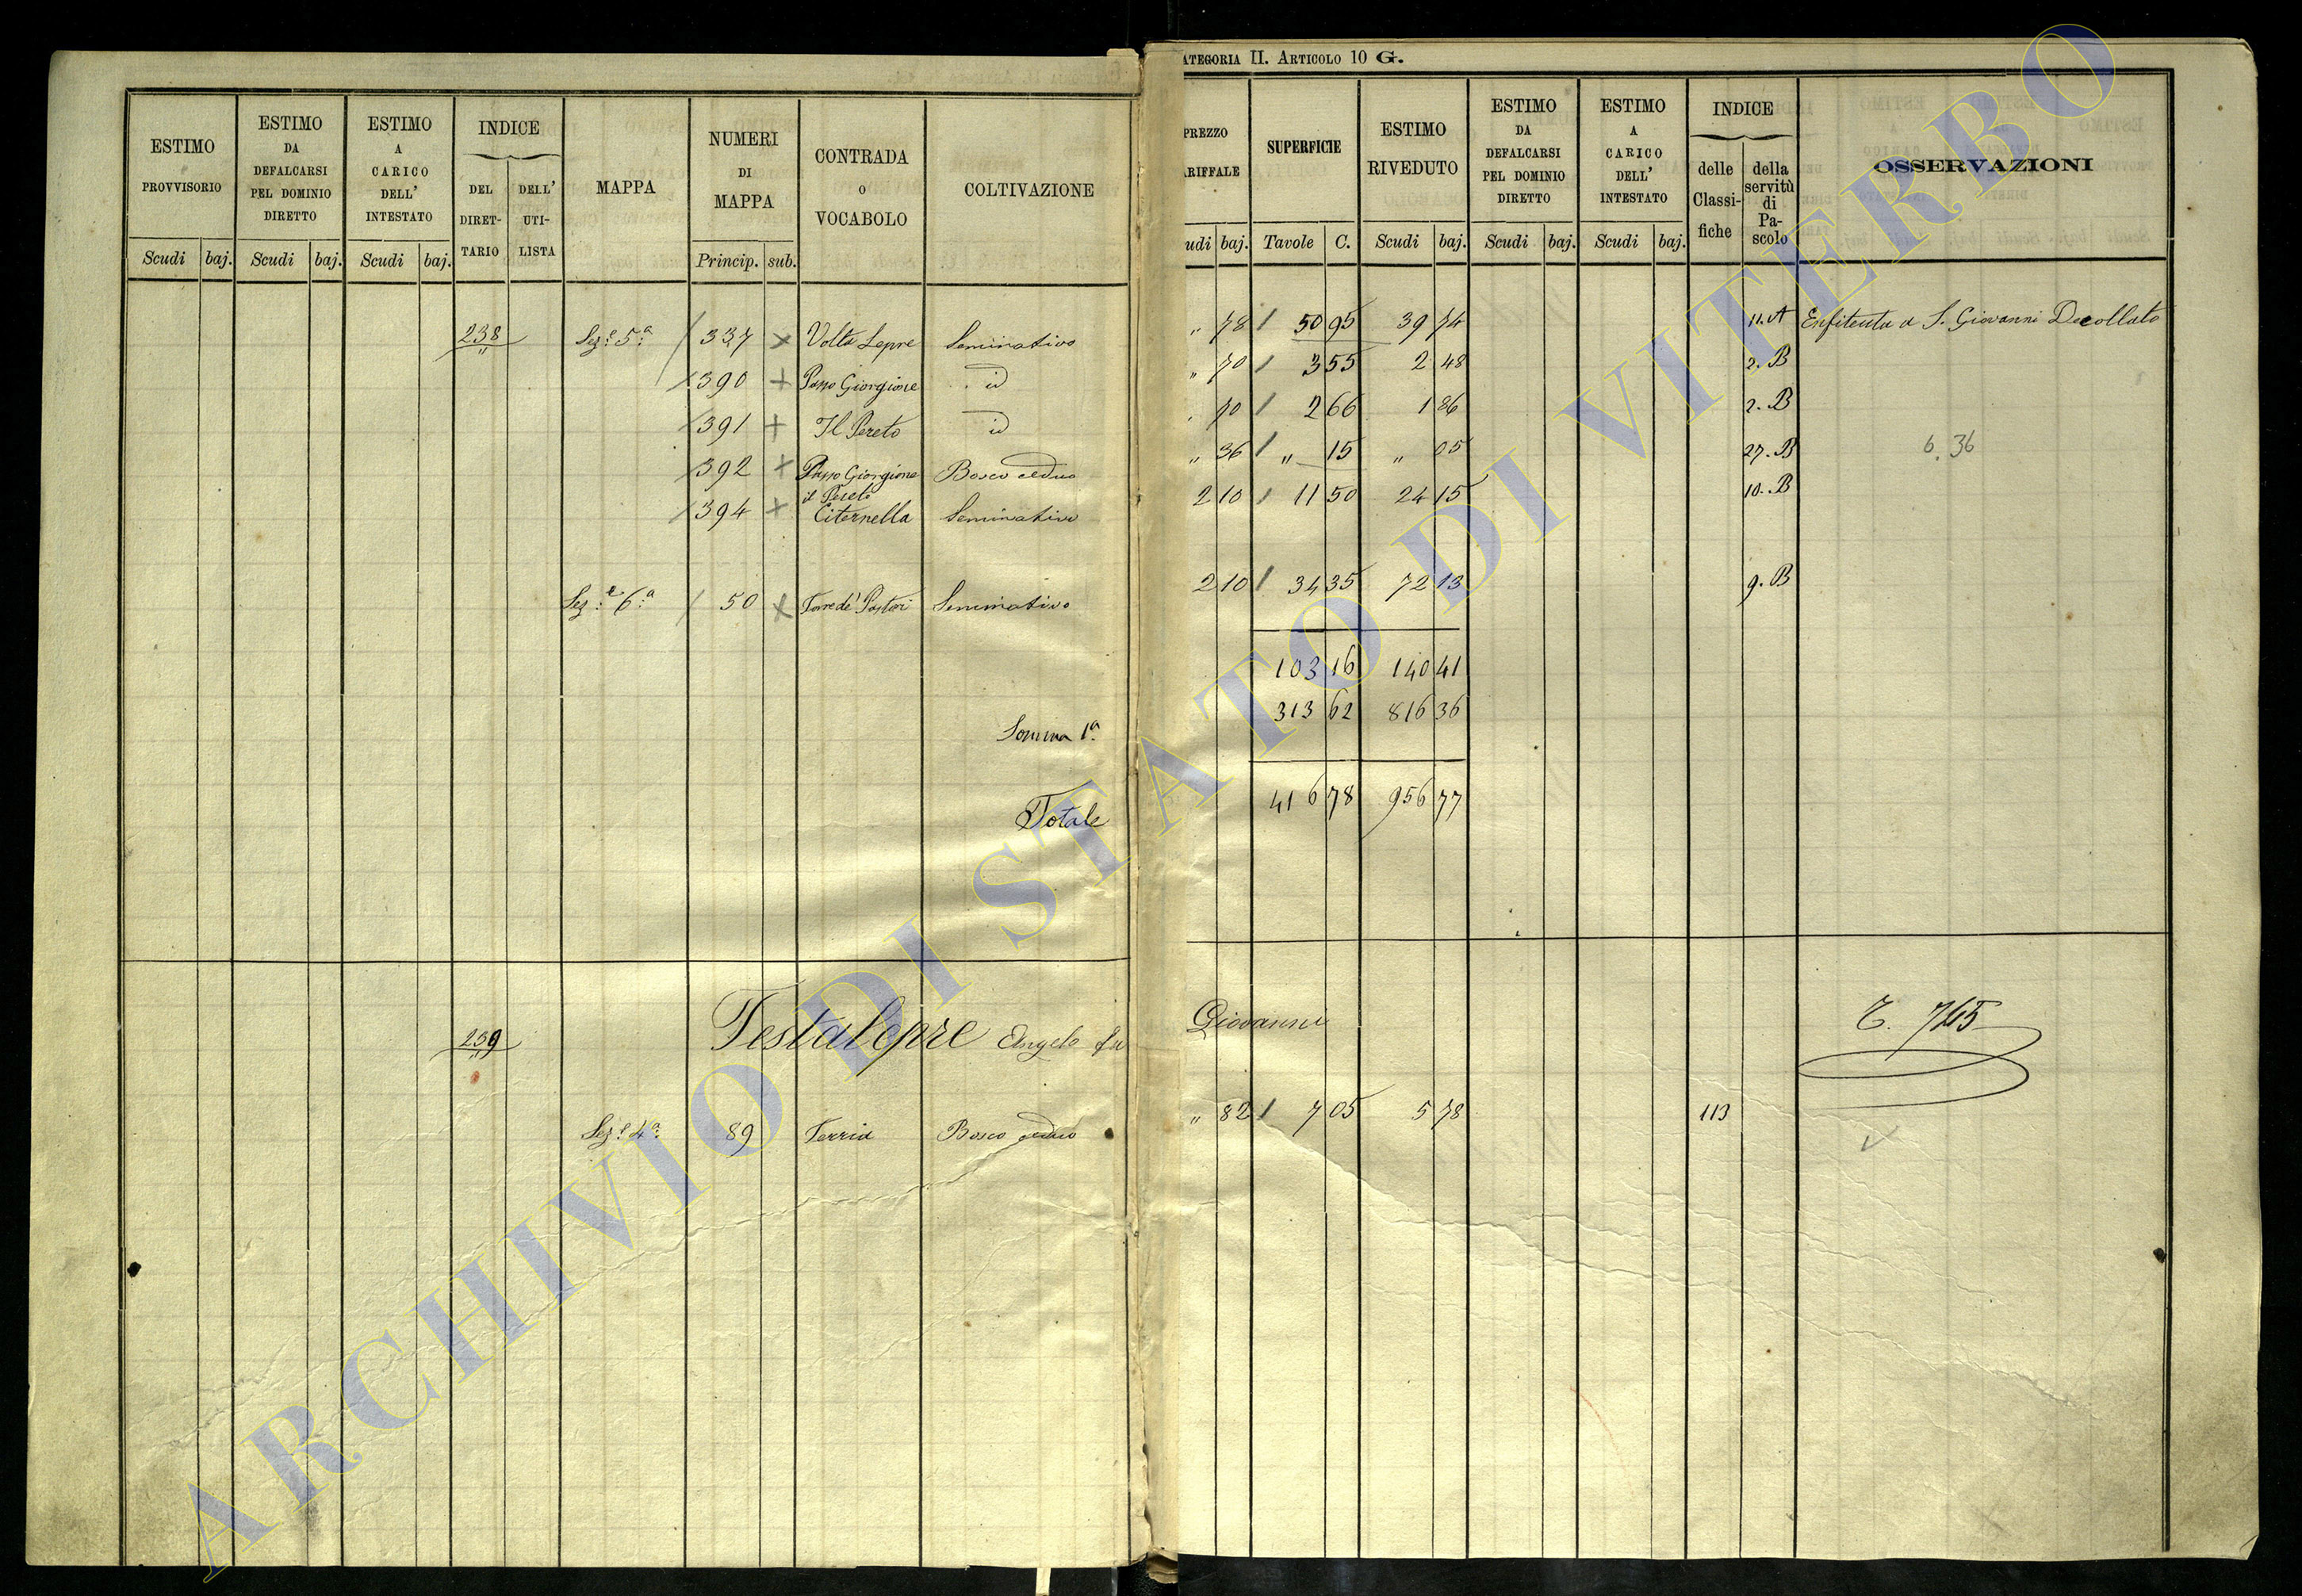 ATEGORIA II. ARTICOLO 10 G.
ESTIMO PROVVISORIO
Scudi baj.
ESTIMO DA DEFALCARSI PEL DOMINIO DIRETTO
Scudi baj.
ESTIMO A CARICO DELL' INTESTATO
Scudi baj.
INDICE
DEL DIRET-TARIO
DELL' UTI-LISTA
MAPPA
NUMERI DI MAPPA
Princip. sub.
CONTRADA O VOCABOLO
COLTIVAZIONE
PREZZO ARIFFALE
udi baj.
SUPERFICIE
Tavole C.
ESTIMO RIVEDUTO
Scudi baj.
ESTIMO DA DEFALCARSI PEL DOMINIO DIRETTO
Scudi baj.
ESTIMO A CARICO DELL' INTESTATO
Scudi baj.
INDICE
delle Classi-fiche
della servitù di Pa-scolo
OSSERVAZIONI
238 Sez.e 5a 337 Volta Lepre Seminativo " 78 50 95 39 74 11. A Enfiteuta a S. Giovanni Decollato
390 Passo Giorgione id " 70 3 55 2 48 2. B
391 Il Pereto id 70 2 66 1 86 2. B
392 Passo Giorgione il Pereto Bosco ceduo " 36 " 15 " 05 27. B 6.36
394 Citernella Seminativo 2 10 11 50 24 15 10. B
Sez.e 6a 50 Torre de' Pastori Seminativo 2 10 34 35 72 13 9. B
103 16 140 41
Somma 1a 313 62 816 36
Totale 416 78 956 77
239 Testalepre Angelo fu Giovanni T. 765
Sez.e 4a 89 Ferria Bosco ceduo " 82 7 05 5 78 113
ARCHIVIO DI STATO DI VITERBO